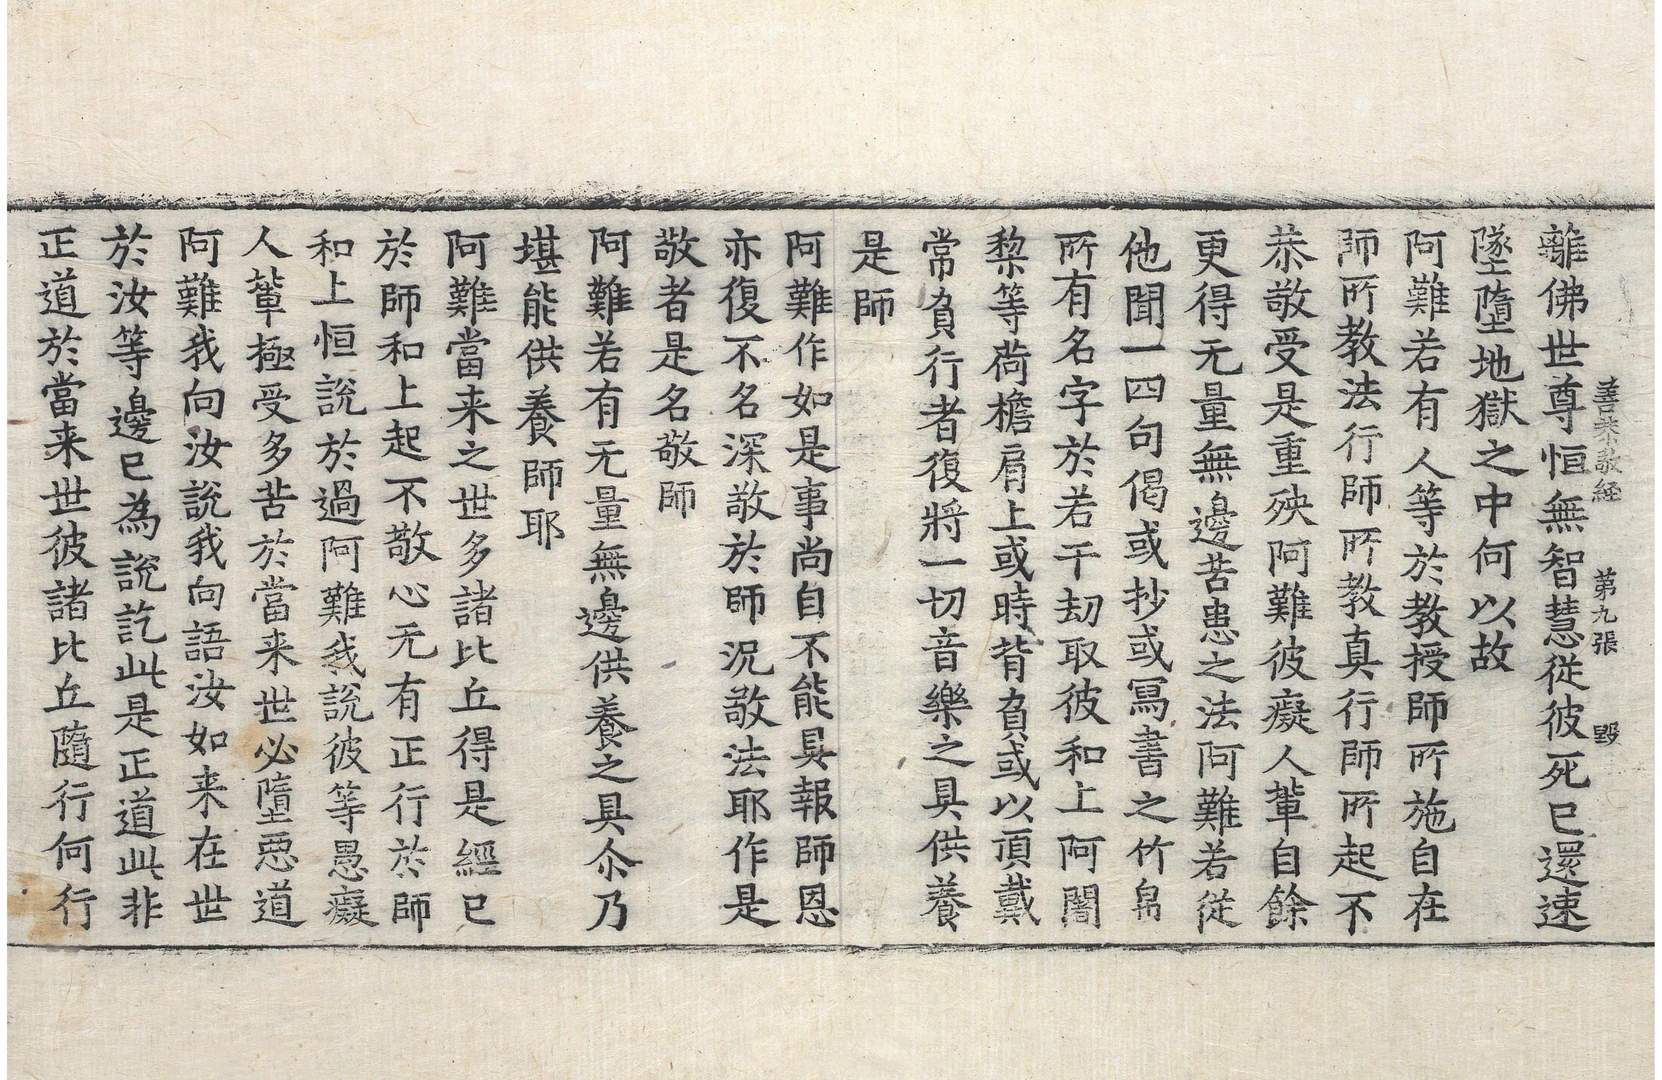 善恭敬経 第九張 毀
離佛世尊恒無智慧從彼死已還速
墜墮地獄之中何以故
阿難若有人等於教授師所施自在
師所教法行師所教真行師所起不
恭敬受是重殃阿難彼癡人輩自餘
更得无量無邊苦患之法阿難若從
他聞一四句偈或抄或寫書之竹帛
所有名字於若干劫取彼和上阿闍
梨等荷檐肩上或時背負或以頂戴
常負行者復將一切音樂之具供養
是師
阿難作如是事尚自不能具報師恩
亦復不名深敬於師况敬法耶作是
敬者是名敬師
阿難若有无量無邊供養之具尒乃
堪能供養師耶
阿難當来之世多諸比丘得是經已
於師和上起不敬心无有正行於師
和上恒說於過阿難我說彼等愚癡
人輩極受多苦於當来世必墮惡道
阿難我向汝說我向語汝如来在世
於汝等邊已為說訖此是正道此非
正道於當来世彼諸比丘隨行何行